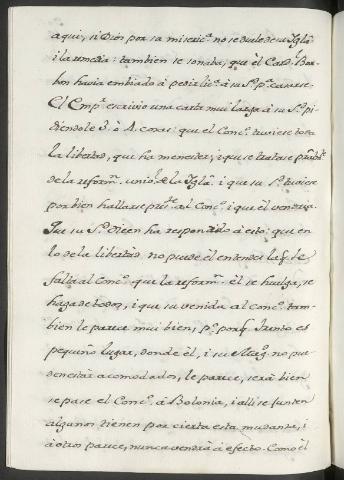 aqui, si Dios por su miseric.ª no se duele de su Iglª
i la remedia: tambien se sonaba, que el Card. Bor-
bon havia embiado á pedir lic.ª á su S.d p.ª casarse.
El Emp.r escrivio una carta mui larga á su S.d pi-
diendole 3. ó 4. cosas: que el Conc.º tuviese toda
la libertad, que ha menester; i que se tratase
de la reform.n union de la Iglª i que su S.d tuviese
por bien hallarse pres.te al Conc.º i que él vendria.
Que su S.d Dicen ha respondido á esto; que en
lo de la libertad, no puede él entender la q.e le
falta al Conc.º que la reform.n él se huelga, se
haga de todos, i que su venida al Conc.º tam-
bien le parece mui bien, p.º porq.e Trento es
pequeño lugar, donde él, i su Mag.d no pu-
dieran estar acomodados, le parece, será bien
se pase el Conc.º á Bolonia, i alli se junten
algunos tienen por cierta esta mudanza, i
á otros parece, nunca vendrá á efecto. Como él